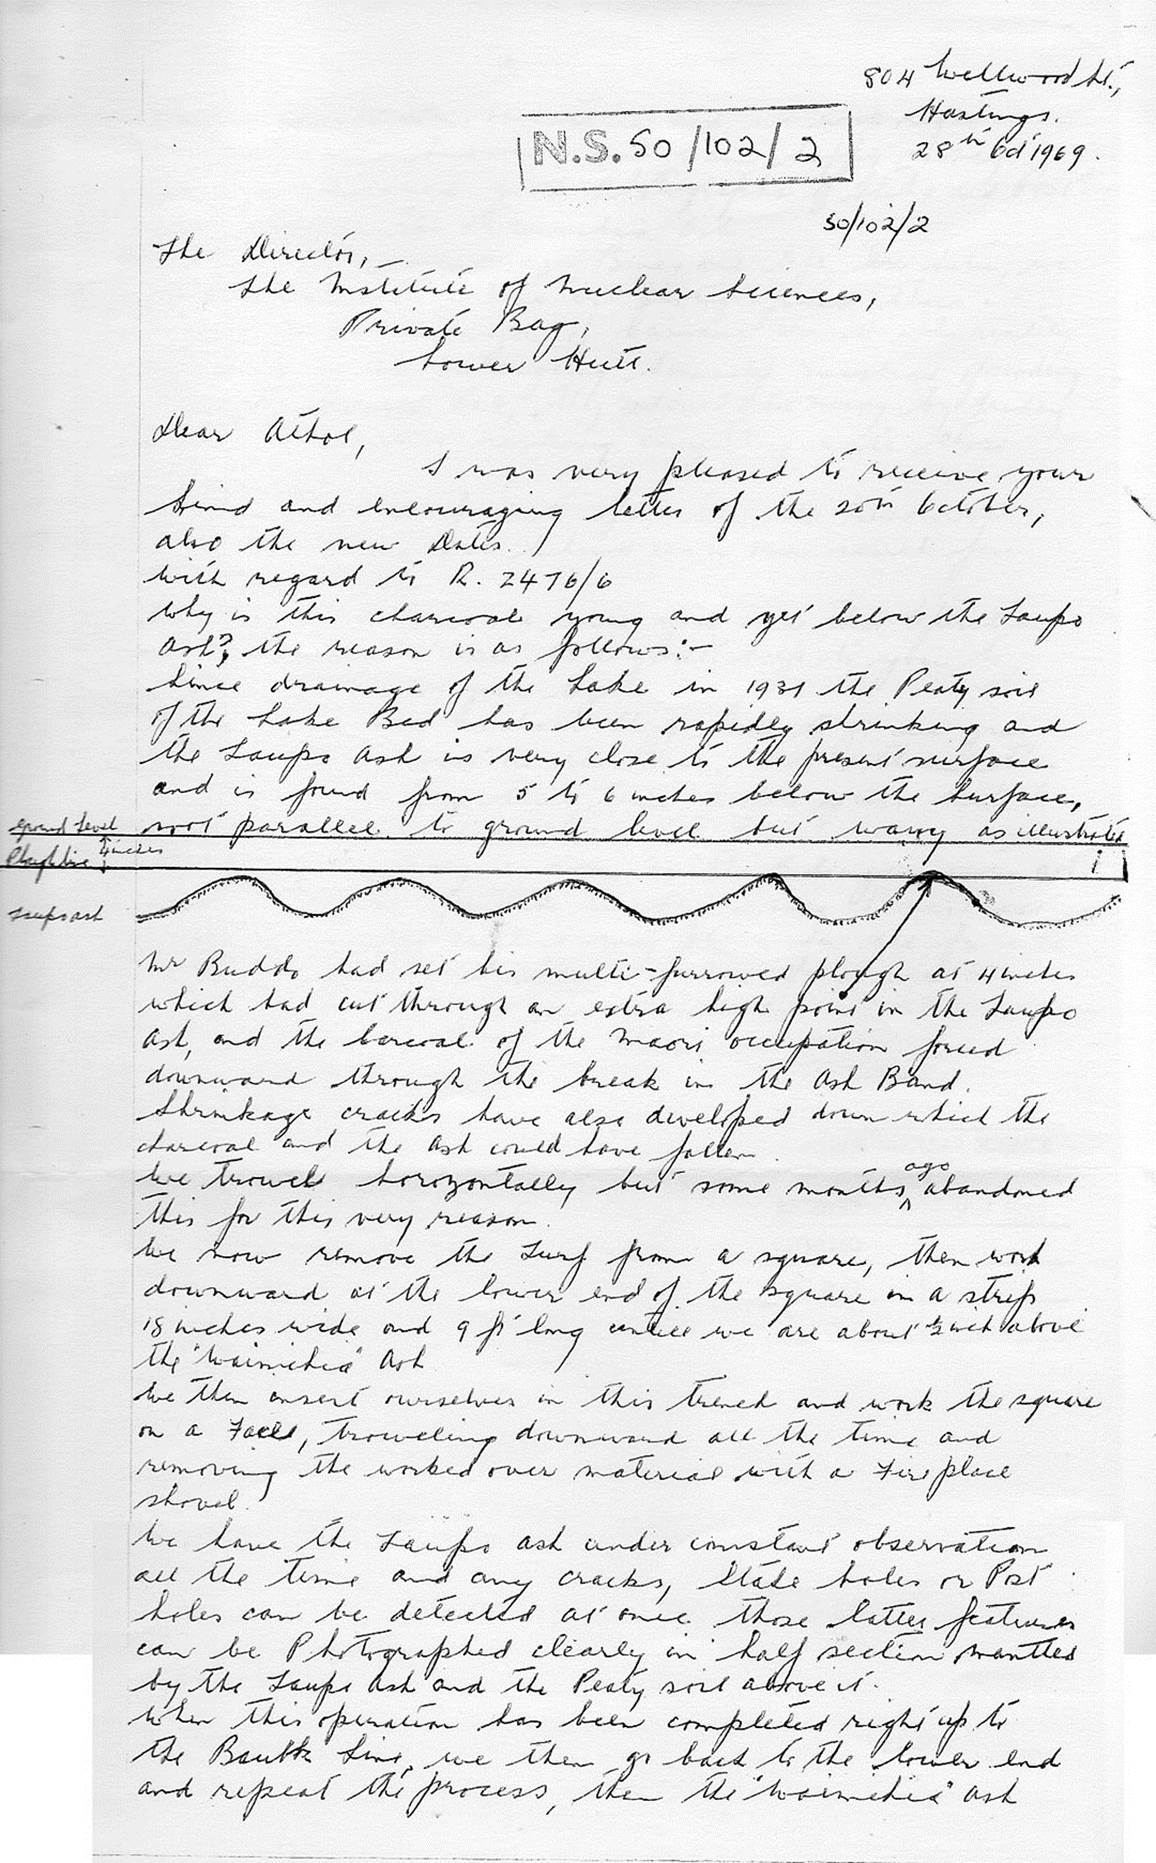 804 Wellwood St.,
Hastings.
28th Oct 1969.
N.S. 50/102/2
50/102/2
The Director,
The Institute of Nuclear Sciences,
Private Bag,
Lower Hutt.
Dear Athol,
I was very pleased to receive your
kind and encouraging letter of the 20th October,
also the new Dates.
With regard to R. 2476/6
Why is this charcoal young and yet below the Taupo
Ash?, the reason is as follows:-
Since drainage of the Lake in 1931 the Peaty soil
of the Lake Bed has been rapidly shrinking and
the Taupo Ash is very close to the present surface
and is found from 5 to 6 inches below the surface,
not parallel to ground level but wavy as illustrated
ground level
Plough line 4 inches
Taupo ash
Mr Buddo had set his multi-furrowed plough at 4 inches
which had cut through an extra high point in the Taupo
Ash, and the charcoal of the Maori occupation forced
downward through the break in the Ash Band.
Shrinkage cracks have also developed down which the
charcoal and the Ash could have fallen.
We trowel horozontally but some months ago abandoned
this for this very reason.
We now remove the Turf from a square, then work
downward at the lower end of the square in a strip
18 inches wide and 9 ft long untill we are about ½ inch above
the "Waimihia" Ash
We then insert ourselves in this trench and work the square
on a Face, troweling downward all the time and
removing the worked over material with a Fire place
shovel.
We have the Taupo ash under constant observation
all the time and any cracks, Stake holes or Post
holes can be detected at once those latter features
can be Photographed clearly in half section mantled
by the Taupo Ash and the Peaty soil above it.
When this operation has been completed right up to
the Baulk line, we then go back to the lower end
and repeat the process, then the "Waimihia" ash